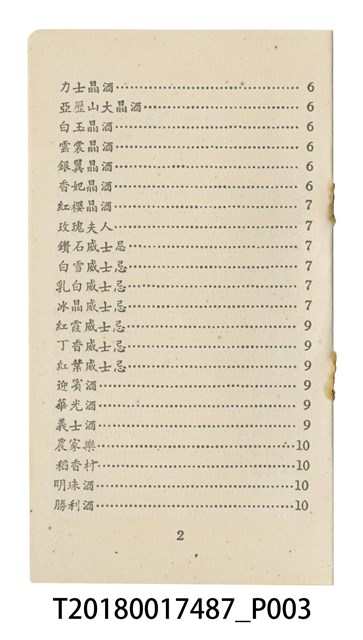 力士晶酒 6
亞歷山大晶酒 6
白玉晶酒 6
雲裳晶酒 6
銀翼晶酒 6
香妃晶酒 6
紅櫻晶酒 7
玫瑰夫人 7
鑽石威士忌 7
白雪威士忌 7
乳白威士忌 7
冰晶威士忌 7
紅霞威士忌 9
丁香威士忌 9
紅葉威士忌 9
迎賓酒 9
華光酒 9
義士酒 9
農家樂 10
稻香村 10
明珠酒 10
勝利酒 10
2
T20180017487_P003